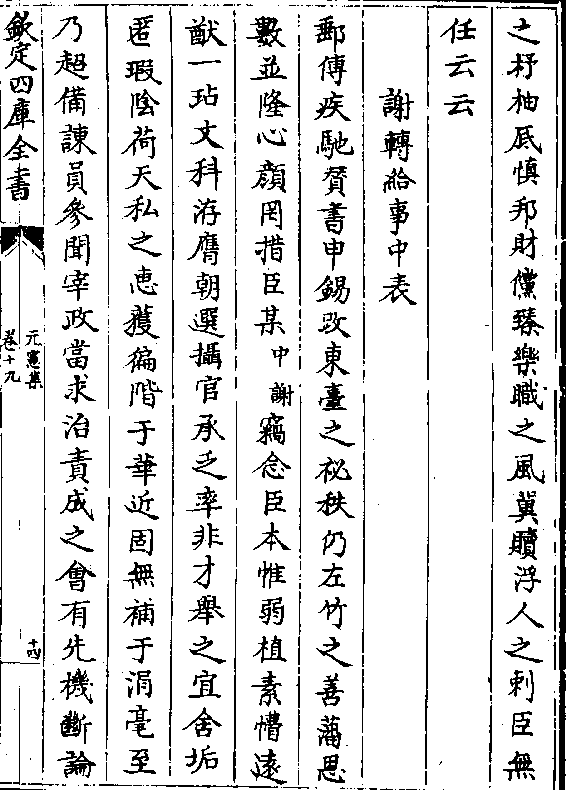 之杼柚厎慎邦財儻臻樂職之風冀贖浮人之刺臣無
任云云
謝轉給事中表
郵傳疾馳贊書申錫改東臺之祕秩仍左竹之善藩恩
數並隆心顔罔措臣某中謝竊念臣本惟弱植素懵遠
猷一玷文科洊膺朝選攝官承乏率非才舉之宜舍垢
匿瑕陰荷天私之惠獲徧階于華近固無補于涓毫至
乃超備諫員參聞宰政當求治責成之會有先機斷論
欽定四庫全書
元憲集
卷十九
十四